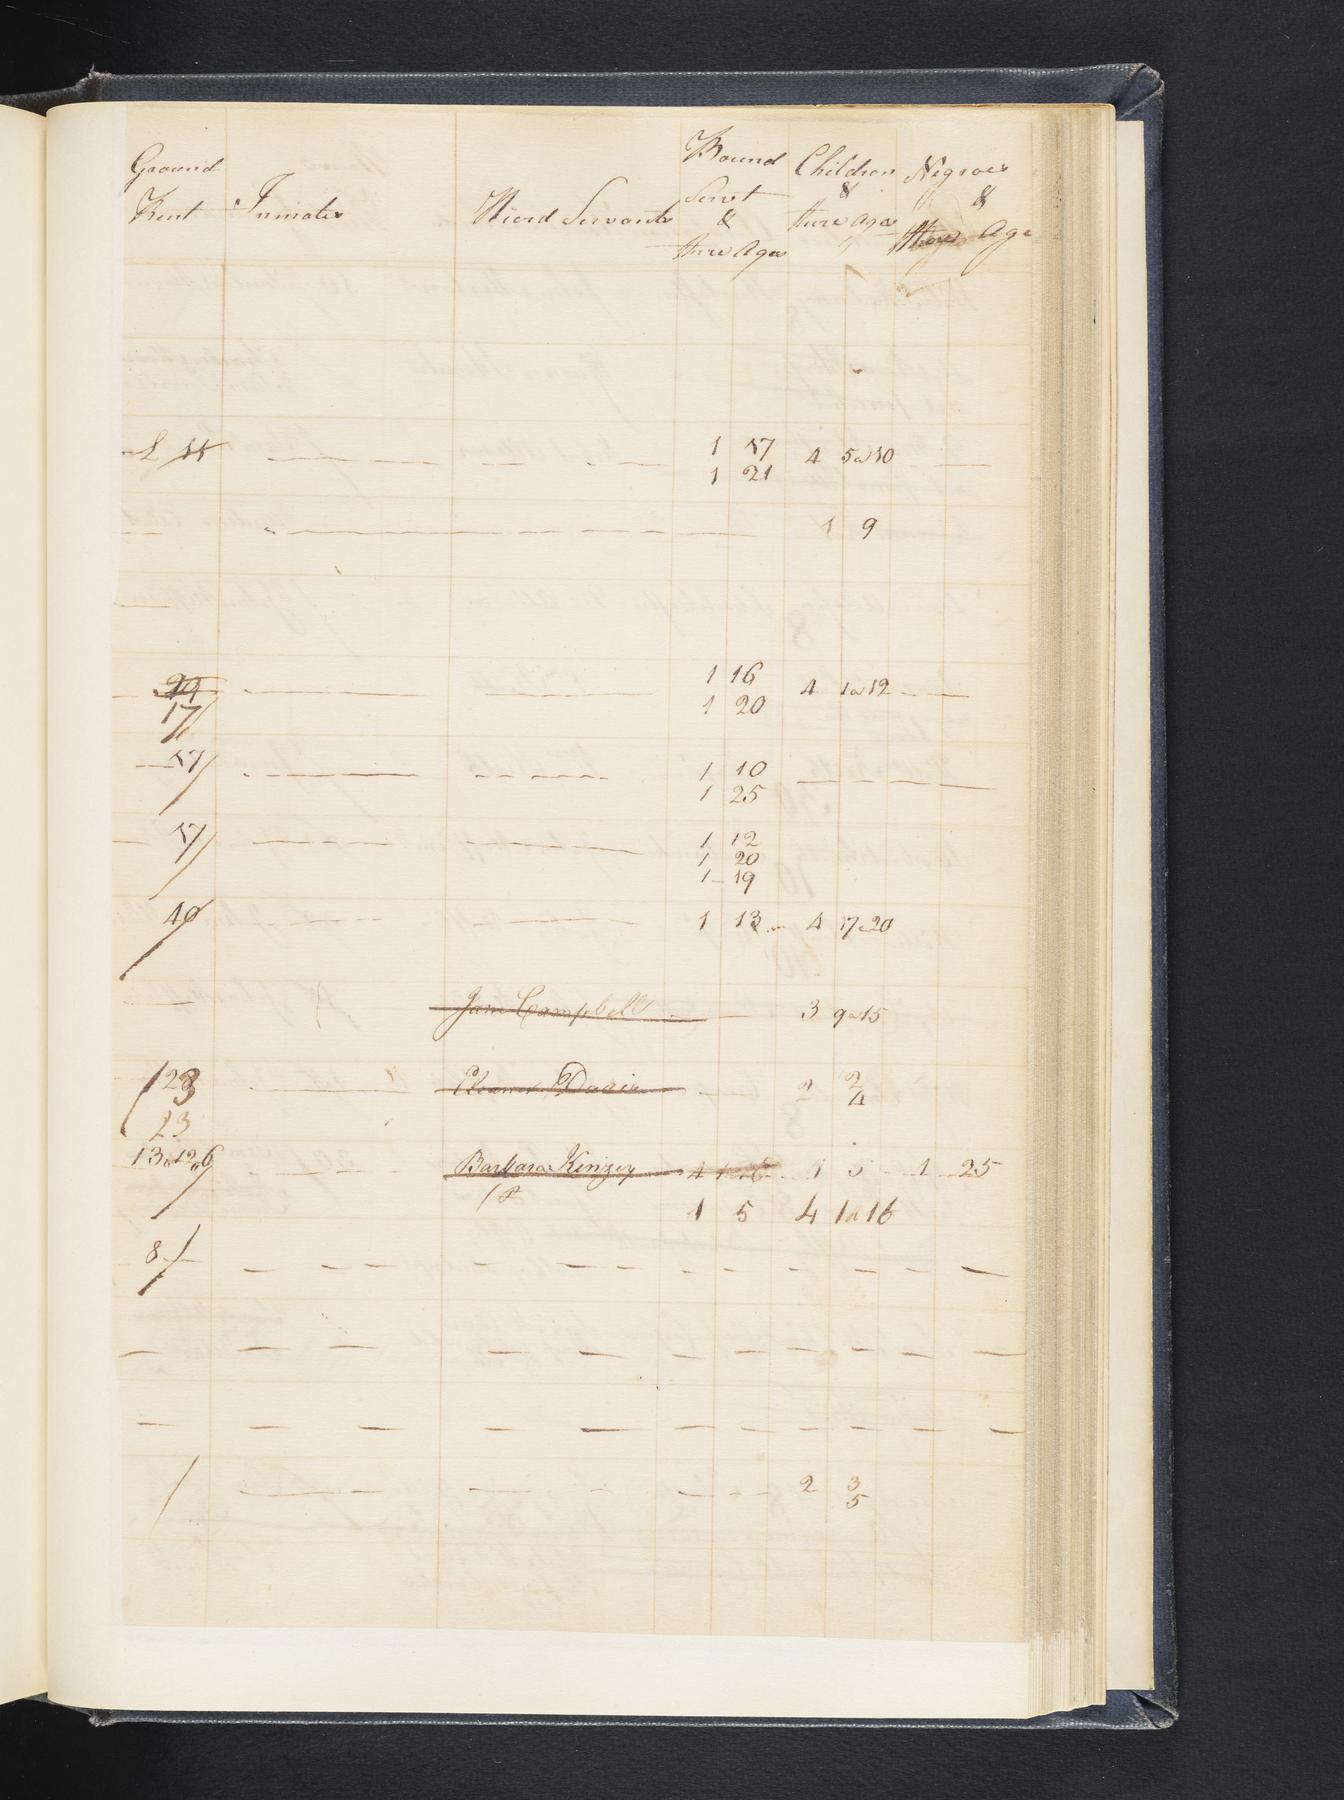 Ground Rent Inmates Hierd Servants Bound Servt & there Ages Children & there ages Negroes & there Age
1 17 4 5 a 10
1 21
1 9
1 16 4 1 a 12
1 20
17/
17/ 1 10
1 25
17/ 1 12
1 20
1 19
40/ 1 13 4 17 a 20
Jane Campbell 3 9 a 15
23 Eleanor Davis 2 2
4
23
13..12..6 Barbara Kinzey 1 5 1 25
1 5 4 1 a 16
8/
2 3
5